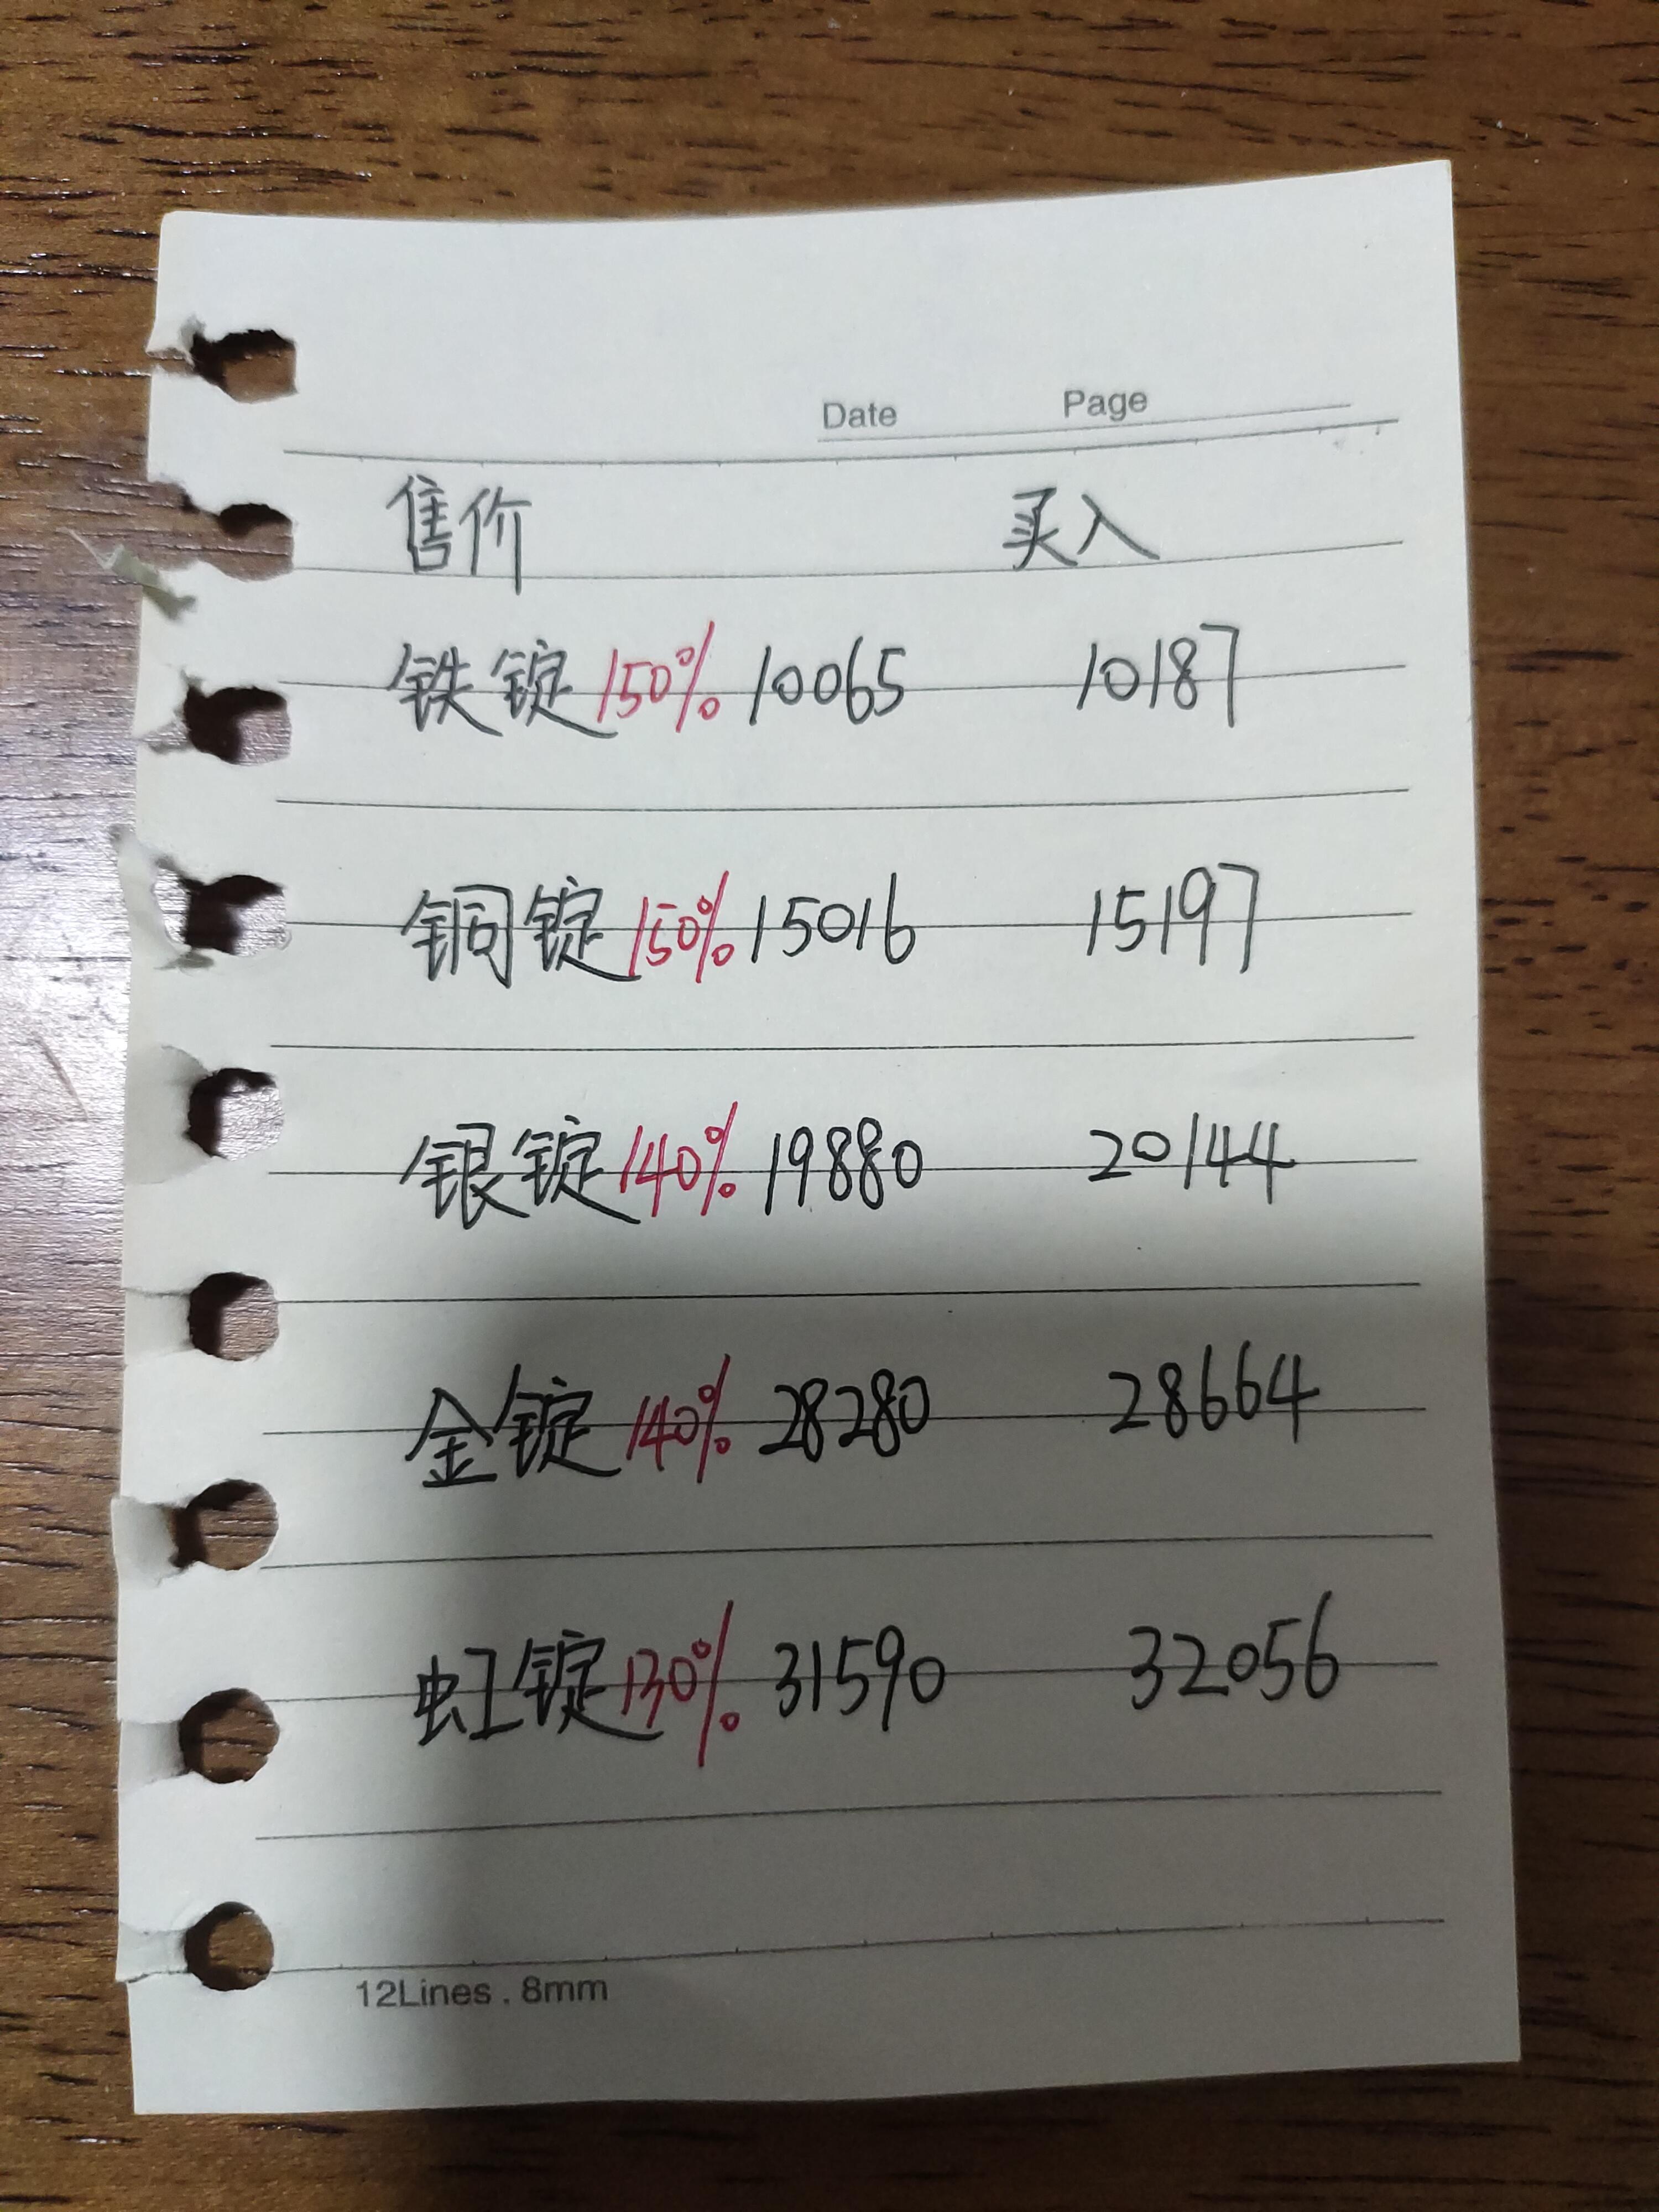 Date Page
售价 买入
铁锭150% 10065 10187
铜锭150% 15016 15197
银锭140% 19880 20144
金锭140% 28280 28664
虹锭130% 31590 32056
12Lines . 8mm